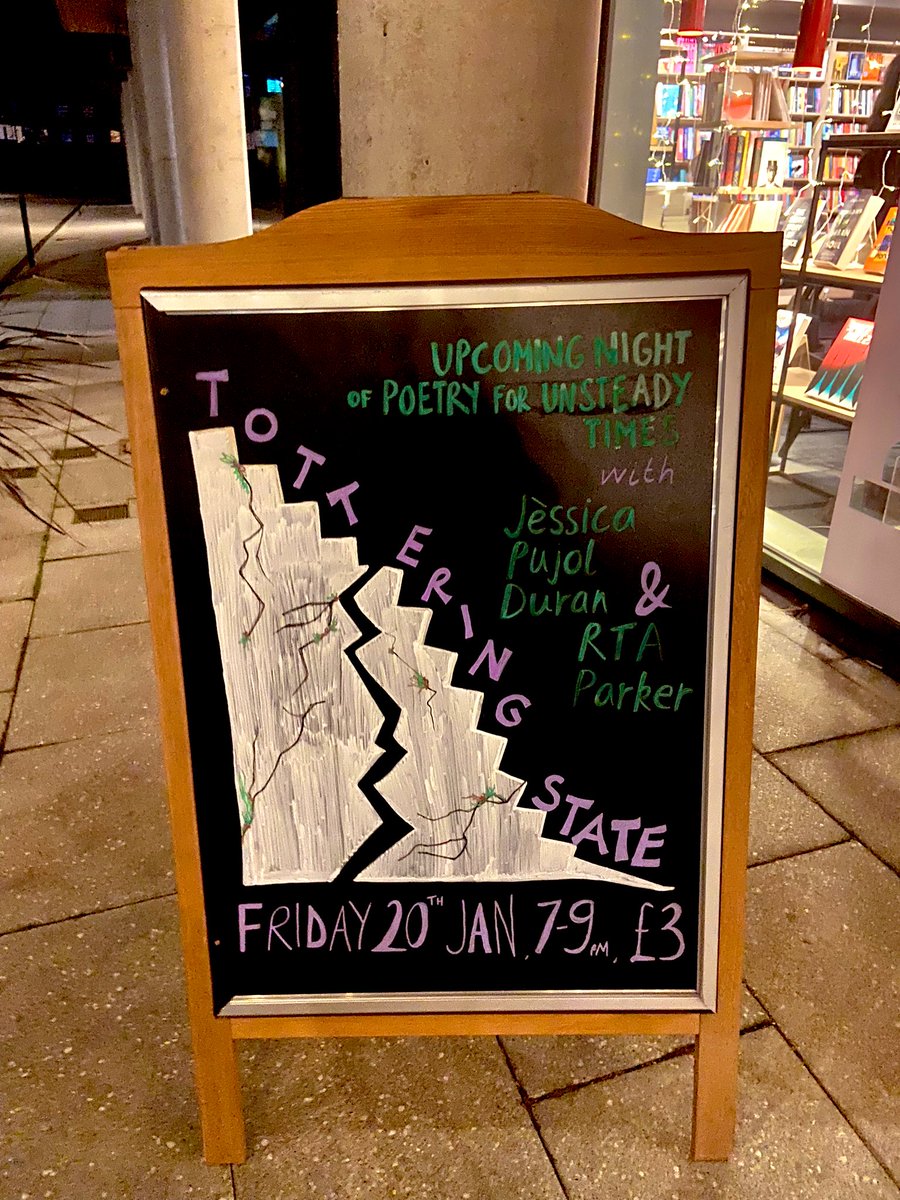 UPCOMING NIGHT
OF POETRY FOR UNSTEADY
TIMES
with
Jèssica
Pujol
Duran &
RTA
Parker
TOTTERING STATE
FRIDAY 20TH JAN, 7-9PM, £3